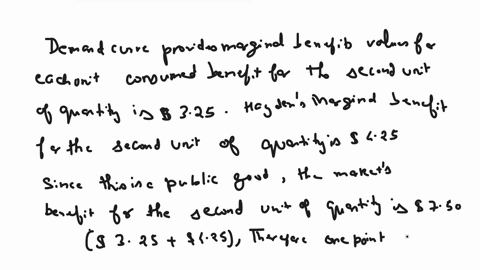 Demand curve provides marginal benefits values for
each unit consumed benefit for the second unit
of quantity is $ 3.25. Hayden's marginal benefit
for the second unit of quantity is $ 4.25
Since this is a public good, the market's
benefit for the second unit of quantity is $ 7.50
($ 3.25 + $4.25), Therefore one point